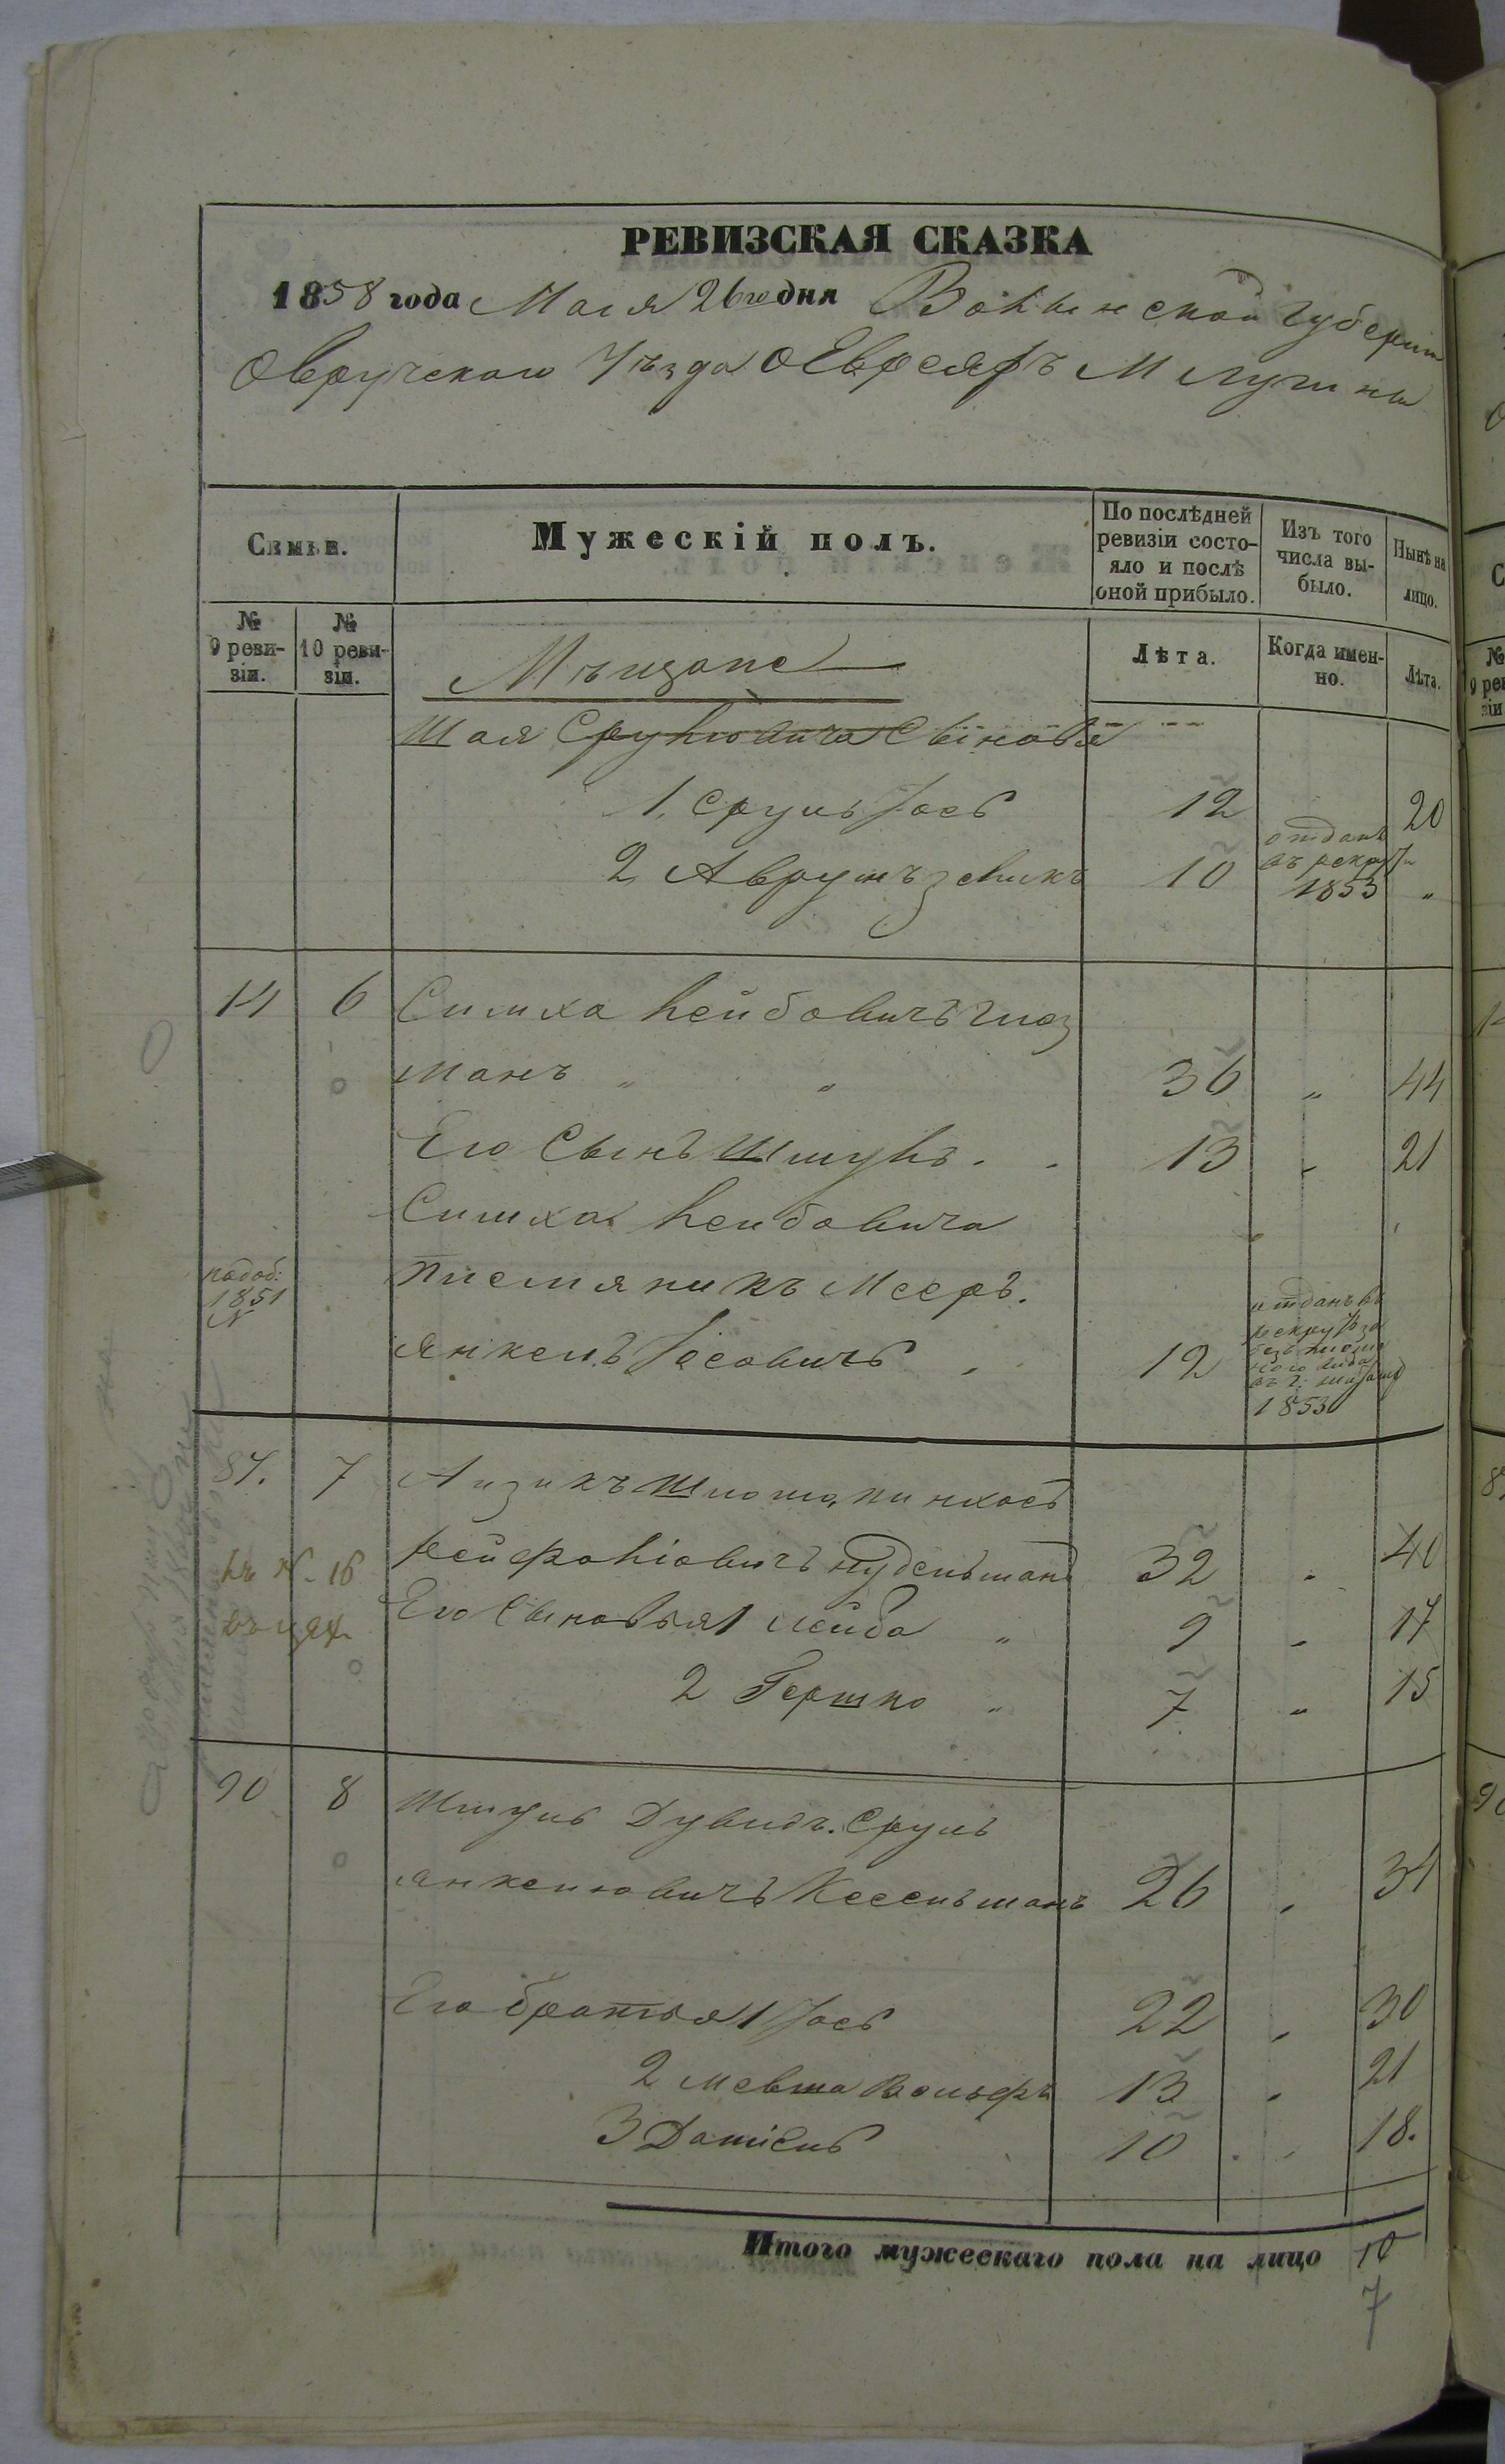 РЕВИЗСКАЯ СКАЗКА
1858 года Мая 26го дня Волынской губернии
Овручского Уѣзда О Евреяхъ М Лугины
Семьи.
Мужескій полъ.
По послѣдней ревизіи состояло и послѣ оной прибыло.
Изъ того числа выбыло.
Нынѣ на лицо.
№ 9 ревизіи.
№ 10 ревизіи.
Мѣщане
Лѣта.
Когда именно.
Лѣта.
Шая Срулiовича Сыновья
1, Сруль Іось 12 20
2 Аврумъ Зеликъ 10 отданъ въ рекруты 1853 "
14 6 Симха Лейбовичъ Глоз
манъ " " 36 " 44
Его Сынъ Шмуль . . 13 " 21
Симха Лейбовича
племяникъ Мееръ.
1851
Янкель Іосовичъ 12 отданъ въ рекруты за 1853
87. 7 Айзикъ Шлома, Пинхосъ
Рейфолiовичъ Нудельманъ 32 " 40
къ № 16
Его Сыновья 1 Лейба " 9 " 17
въ цех
2 Гершко " 7 " 15
90 8 Шмуль Дувидъ. Сруль
Янкелiовичъ Кесельманъ 26 " 34
Его братья 1 Іось 22 " 30
2 Мевша Вольфъ 13 " 21
3 Даніель 10 " 18.
Итого мужескаго пола на лицо 10
7